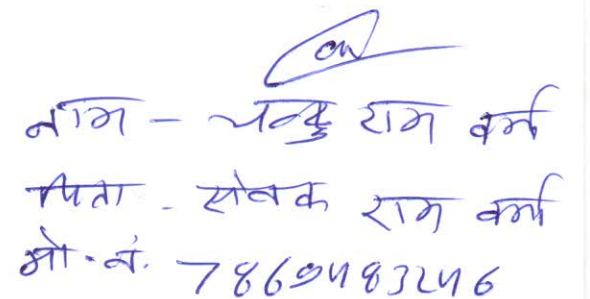 नाम - चन्दु राम वर्मा
पिता - सेवक राम वर्मा
मो. नं. 7869483246